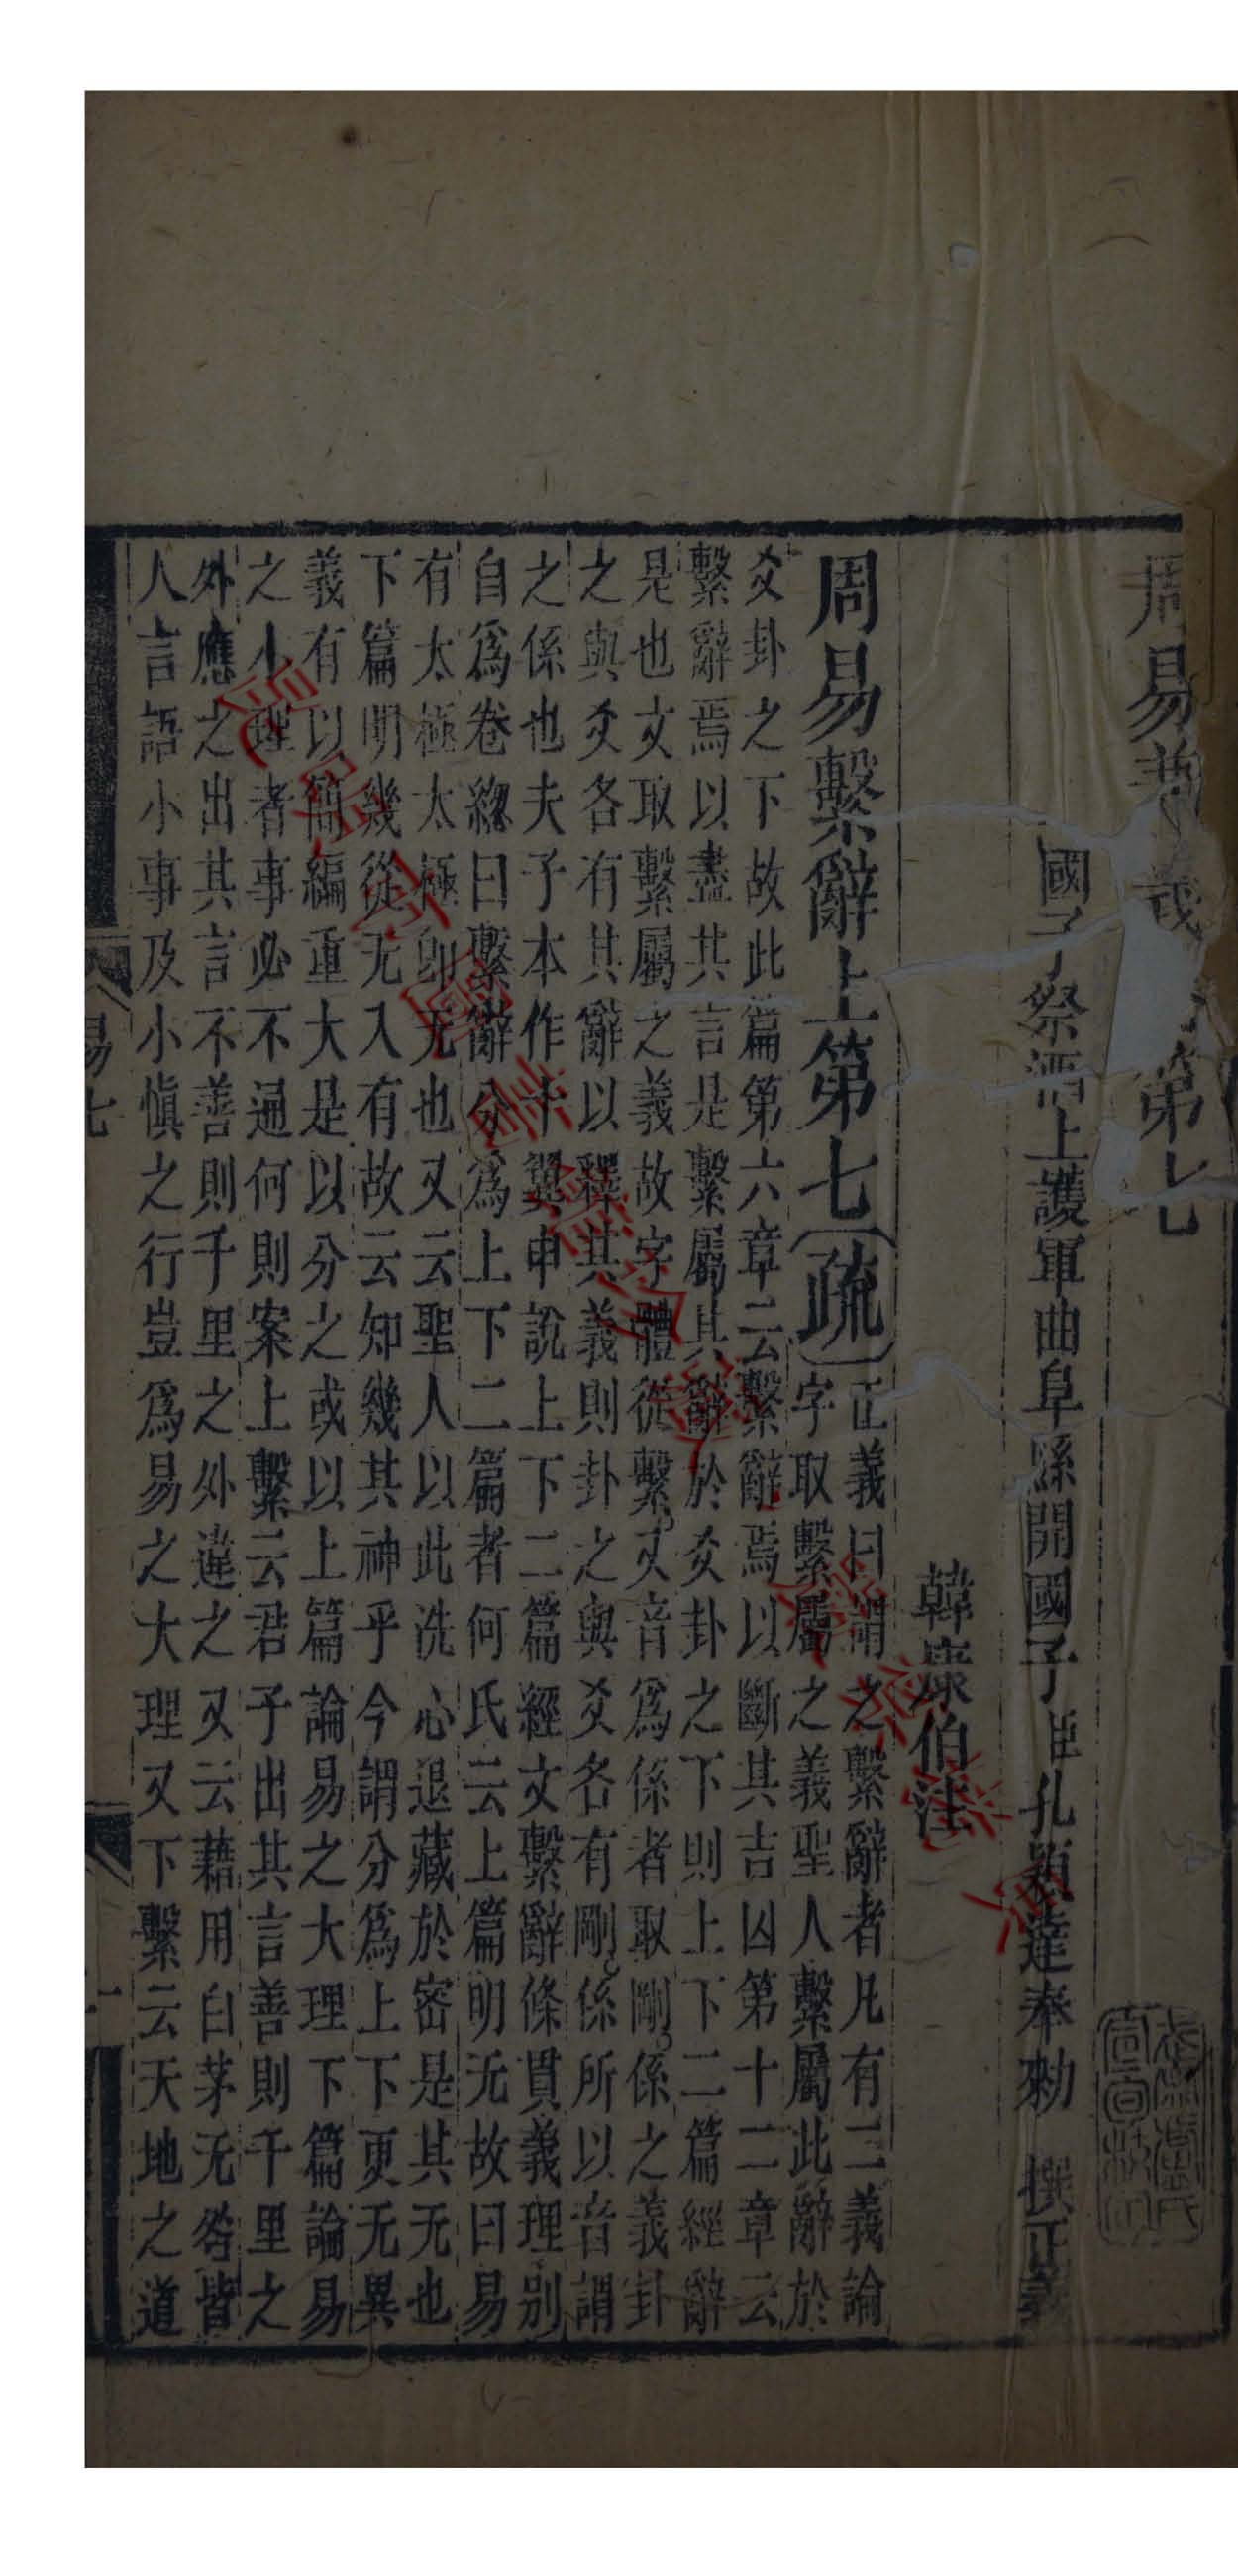 周易兼義 第七
國子祭酒上護軍曲阜縣開國子臣孔穎達奉勑 撰正義
韓康伯注
周易繫辭上第七〔疏〕
正義曰謂之繫辭者凡有二義論
字取繫屬之義聖人繫屬此辭於
爻卦之下故此篇第六章云繫辭焉以斷其吉凶第十二章云
繫辭焉以盡其言是繫屬其辭於爻卦之下則上下二篇經辭
是也文取繫屬之義故字體從繫又音爲係者取剛係之義卦
之與爻各有其辭以釋其義則卦之與爻各有剛係所以音謂
之係也夫子本作十翼申說上下二篇經文繫辭條貫義理別
自爲卷緫曰繫辭分爲上下二篇者何氏云上篇明无故曰易
有太極太極卽无也又云聖人以此洗心退藏於密是其无也
下篇明幾從无入有故云知幾其神乎今謂分爲上下更无異
義有以簡編重大是以分之或以上篇論易之大理下篇論易
之小理者事必不通何則案上繫云君子出其言善則千里之
外應之出其言不善則千里之外違之又云藉用白茅无咎皆
人言語小事及小慎之行豈爲易之大理又下繫云天地之道
易七
一